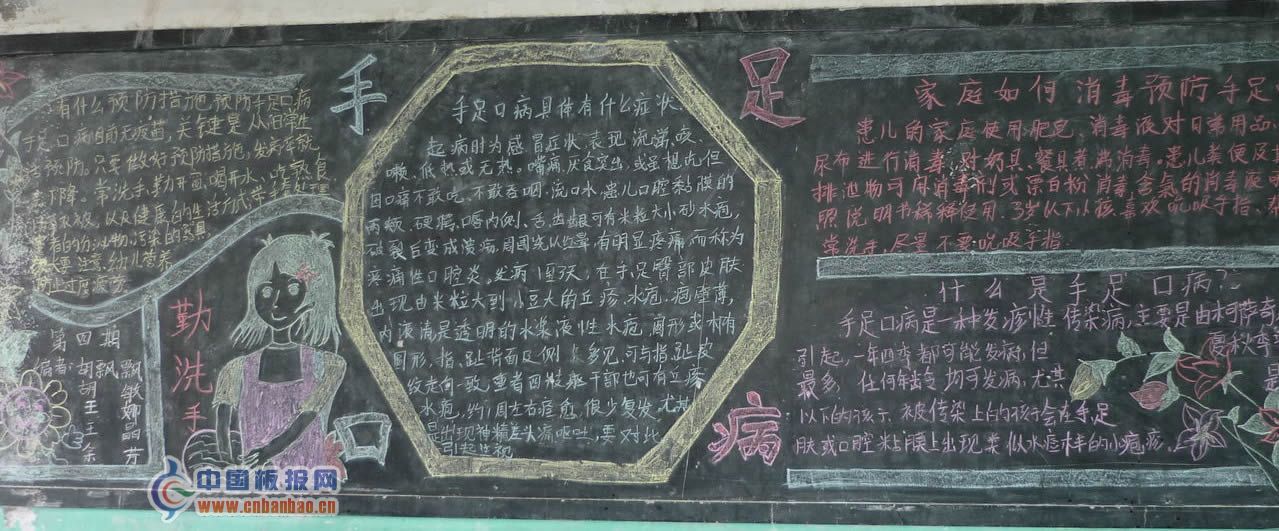 有什么预防措施,预防手足口病
手足口病目前无疫苗,关键是从日常生
活预防。只要做好预防措施,发病率就
会下降。常洗手,勤开窗,喝开水、吃熟食
以及健康的生活方式
污染的
第四期
编者:胡飘飘
胡敏
王娜
王晶
余芳
勤洗手
手
足
口
病
手足口病具体有什么症状
起病时为感冒症状,表现流嚏、咳
嗽、低热或无热。嘴痛,厌食突出,或虽想吃但
因口痛不敢吃、不敢吞咽、流口水,患儿口腔黏膜的
两颊、硬腭、唇内侧、舌、齿龈可有米粒大小砂水疱,
破裂后变成溃疡,周围绕以红晕,有明显疼痛,而称为
疼痛性口腔炎。发病1至3天,在手足臀部皮肤
出现由米粒大到小豆大的丘疹、水疱。疱壁薄,
内液清是透明的水浆液性水疱,圆形或椭有
圆形,指、趾背面及侧上多见,可与指、趾皮
纹走向一致,重者四肢躯干部也可有丘疹
水疱,约1周左右痊愈,很少复发,尤其
是出现神精差头痛呕吐,要对比
引起重视
家庭如何消毒预防手足
患儿的家庭使用肥皂、消毒液对日常用品、
尿布进行消毒,对奶具、餐具煮沸消毒。患儿粪便及
排泄物可用消毒剂或漂白粉消毒,含氯的消毒液
照说明书稀释使用,3岁以下小孩喜欢吮吸手指、
常洗手,尽量不要吮吸手指.
什么是手足口病?
手足口病是一种发疹性传染病,主要是由柯萨奇
引起,一年四季都可能发病,但夏秋季
最多,任何年龄均可发病,尤其是
以下的孩子被传染上的孩子会在手足
肤或口腔粘膜上出现类似水痘样的小疱疹,
中国板报网
www.cnbanbao.cn